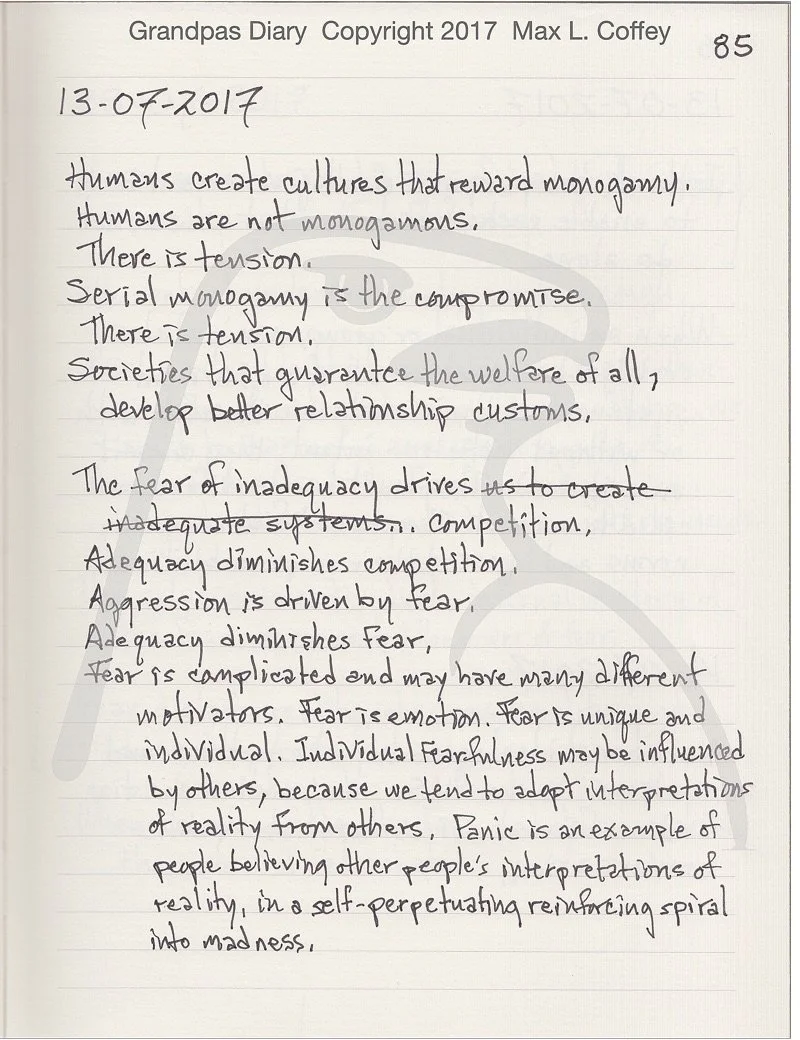 Grandpas Diary Copyright 2017 Max L. Coffey
85
13-07-2017
Humans create cultures that reward monogamy.
Humans are not monogamous.
There is tension.
Serial monogamy is the compromise.
There is tension.
Societies that guarantee the welfare of all,
develop better relationship customs.
The fear of inadequacy drives us to create
inadequate systems... competition.
Adequacy diminishes competition.
Aggression is driven by fear.
Adequacy diminishes fear.
Fear is complicated and may have many different
motivators. Fear is emotion. Fear is unique and
individual. Individual Fearfulness may be influenced
by others, because we tend to adopt interpretations
of reality from others. Panic is an example of
people believing other people's interpretations of
reality, in a self-perpetuating reinforcing spiral
into madness.